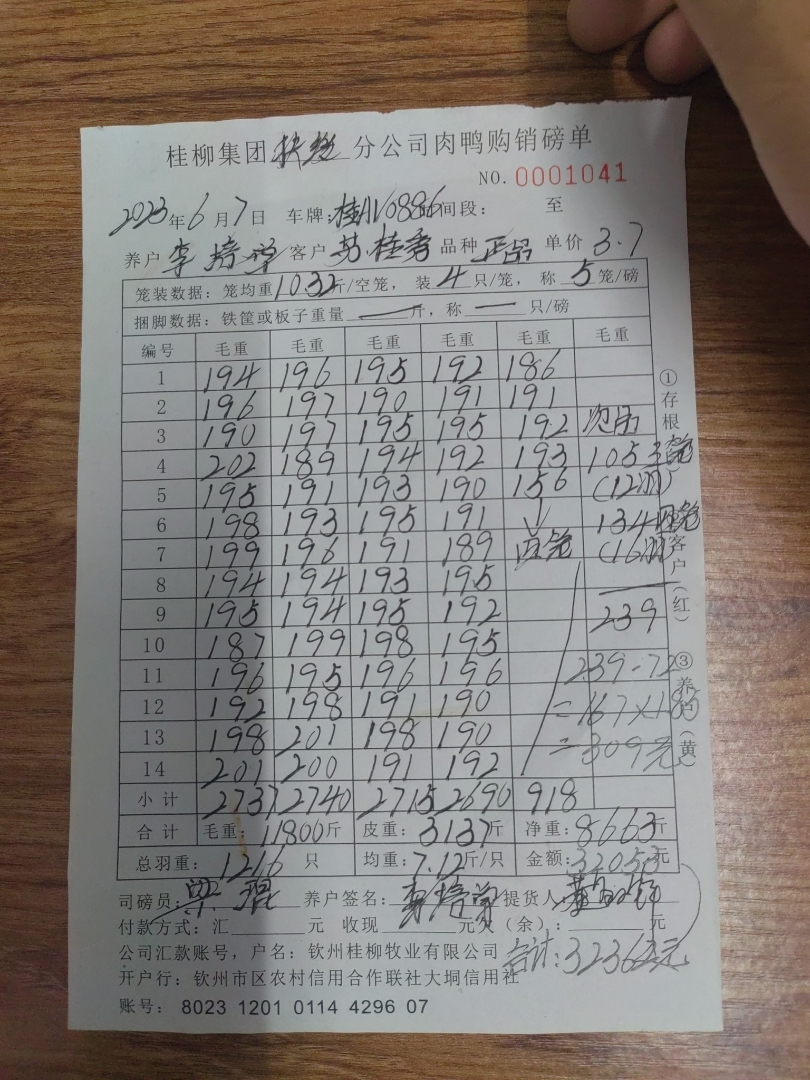 桂柳集团扶绥分公司肉鸭购销磅单
NO. 0001041
2023年6月7日 车牌:桂 0886 间段: 至
养户 李培学 客户 苏桂秀 品种 正品 单价 3.7
笼装数据: 笼均重10.32斤/空笼, 装4只/笼, 称5笼/磅
捆脚数据: 铁筐或板子重量 — 斤, 称 — 只/磅
编号 毛重 毛重 毛重 毛重 毛重 毛重
1 194 196 195 192 186
2 196 197 190 191 191
3 190 197 195 195 192 次品
4 202 189 194 192 193 105 三笼
5 195 191 193 190 156 (12羽)
6 198 193 195 191 ↓ 134 四笼
7 199 196 191 189 四笼 (16羽)
8 194 194 193 195
9 195 194 195 192 239
10 187 199 198 195
11 196 195 196 196 239-72
12 192 198 191 190 =167×1.85
13 198 201 198 190 =309元
14 201 200 191 192
小计 2737 2740 2715 2690 918
合计 毛重: 11800斤 皮重: 3137斤 净重: 8663斤
总羽重: 1216 只 均重: 7.12斤/只 金额: 32053元
司磅员: 梁琨 养户签名: 李培学 提货人:
付款方式: 汇 元 收现 元欠(余): 元
公司汇款账号, 户名: 钦州桂柳牧业有限公司 合计: 32362元
开户行: 钦州市区农村信用合作联社大垌信用社
账号: 8023 1201 0114 4296 07
①存根 ②客户(红) ③养户(黄)